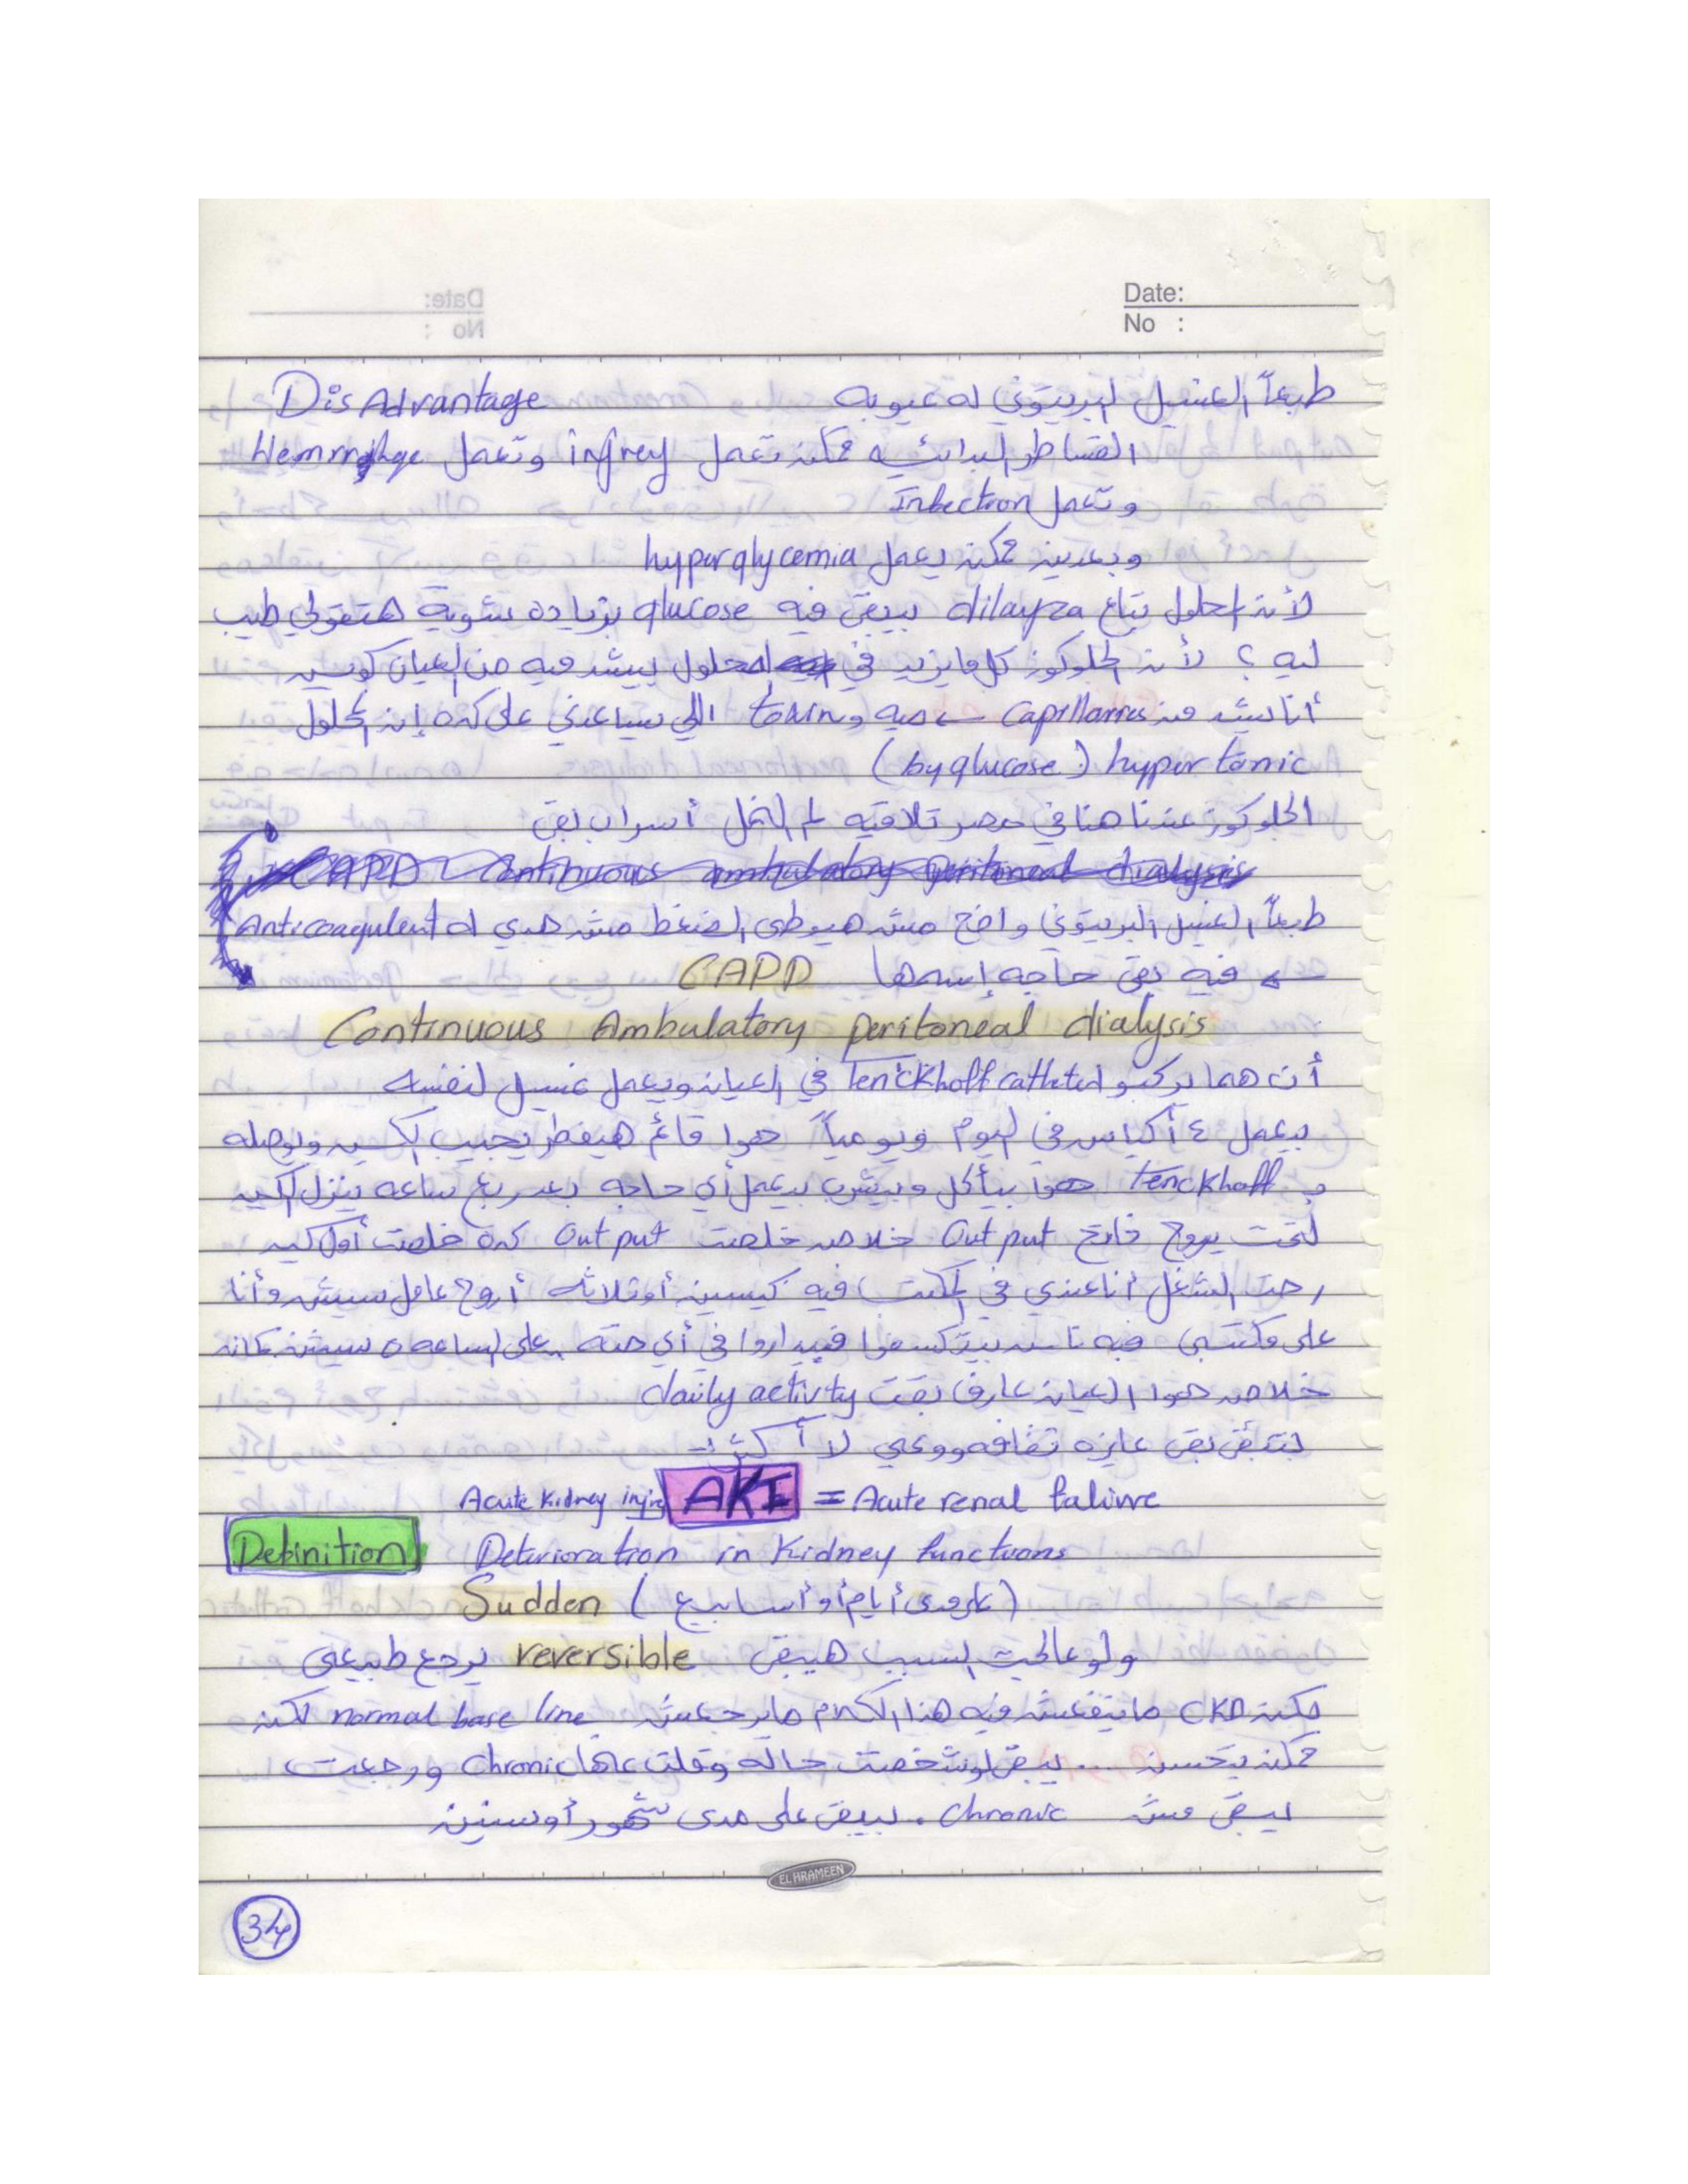 Date:
No :
طبعاً الغسيل البريتوني له عيوبه DisAdvantage
القساطر البدائيه ممكن تعمل injrey وتعمل Hemrrghge
وتعمل Infection
وبعدين ممكن يعمل hyperglycemia
لأن المحلول بتاع dilayza بيبقى فيه glucose بزيادة شوية هتقولي طيب
ليه ؟ لأن الجلوكوز كل مايزيد في المحلول بيشد ميه من العيان كويس
أنا بشد من Capillarries ← ميه و toxin الي بيساعدني على كده إن المحلول
hypertonic (by glucose)
الجلوكوز عندنا هنا في مصر تلاقيه لم النمل أسراب بقى
CAPD Continuous ambulatory peritoneal dialysis
طبعاً الغسيل البريتوني واضح مش هيوطى الضغط مش هدي له Anticoagulent
← فيه بقى حاجه إسمها CAPD
Continuous Ambulatory peritoneal dialysis
أن هما يركبو Tenckhoff catheter في العيان ويعمل غسيل لنفسه
بيعمل ٤ أكياس في اليوم ويومياً هوا قائم هيفطر يجيب الكيس ويوصله
بـ Tenckhoff هوا بيأكل وبيشرب بيعمل أي حاجه بعد ربع ساعه ينزل الكيس
لتحت يروح خارج Output خلاص خلصت Output كده خلصت أول كيس
رحت الشغل أنا عندي في المكتب فيه كيسين أو ثلاثه أروح عامل سيشن وأنا
على مكتبي فيه ناس بيتكسفوا فيداروا في أي حته على الساعه ٥ سيشن كمان
خلاص هوا العيان عارف بقت daily activity
بتبقى بقى عايزه ثقافه ووعي لا أكثر
Acute kidney injre AKI = Acute renal faliure
Definition Deterioration in Kidney functions
Sudden (على مدى أيام أو أسابيع)
ولو عالجت السبب هيبقى reversible يرجع طبيعي
لكن CKD ماينفعش فيه هذا الكلام مايرجعش normal base line لكن
ممكن يتحسن ... يبقى لو شخصت حاله وقلت عليها chronic ورجعت
يبقى مش chronic . يبقى على مدى شهور أو سنين
EL HRAMEEN
34